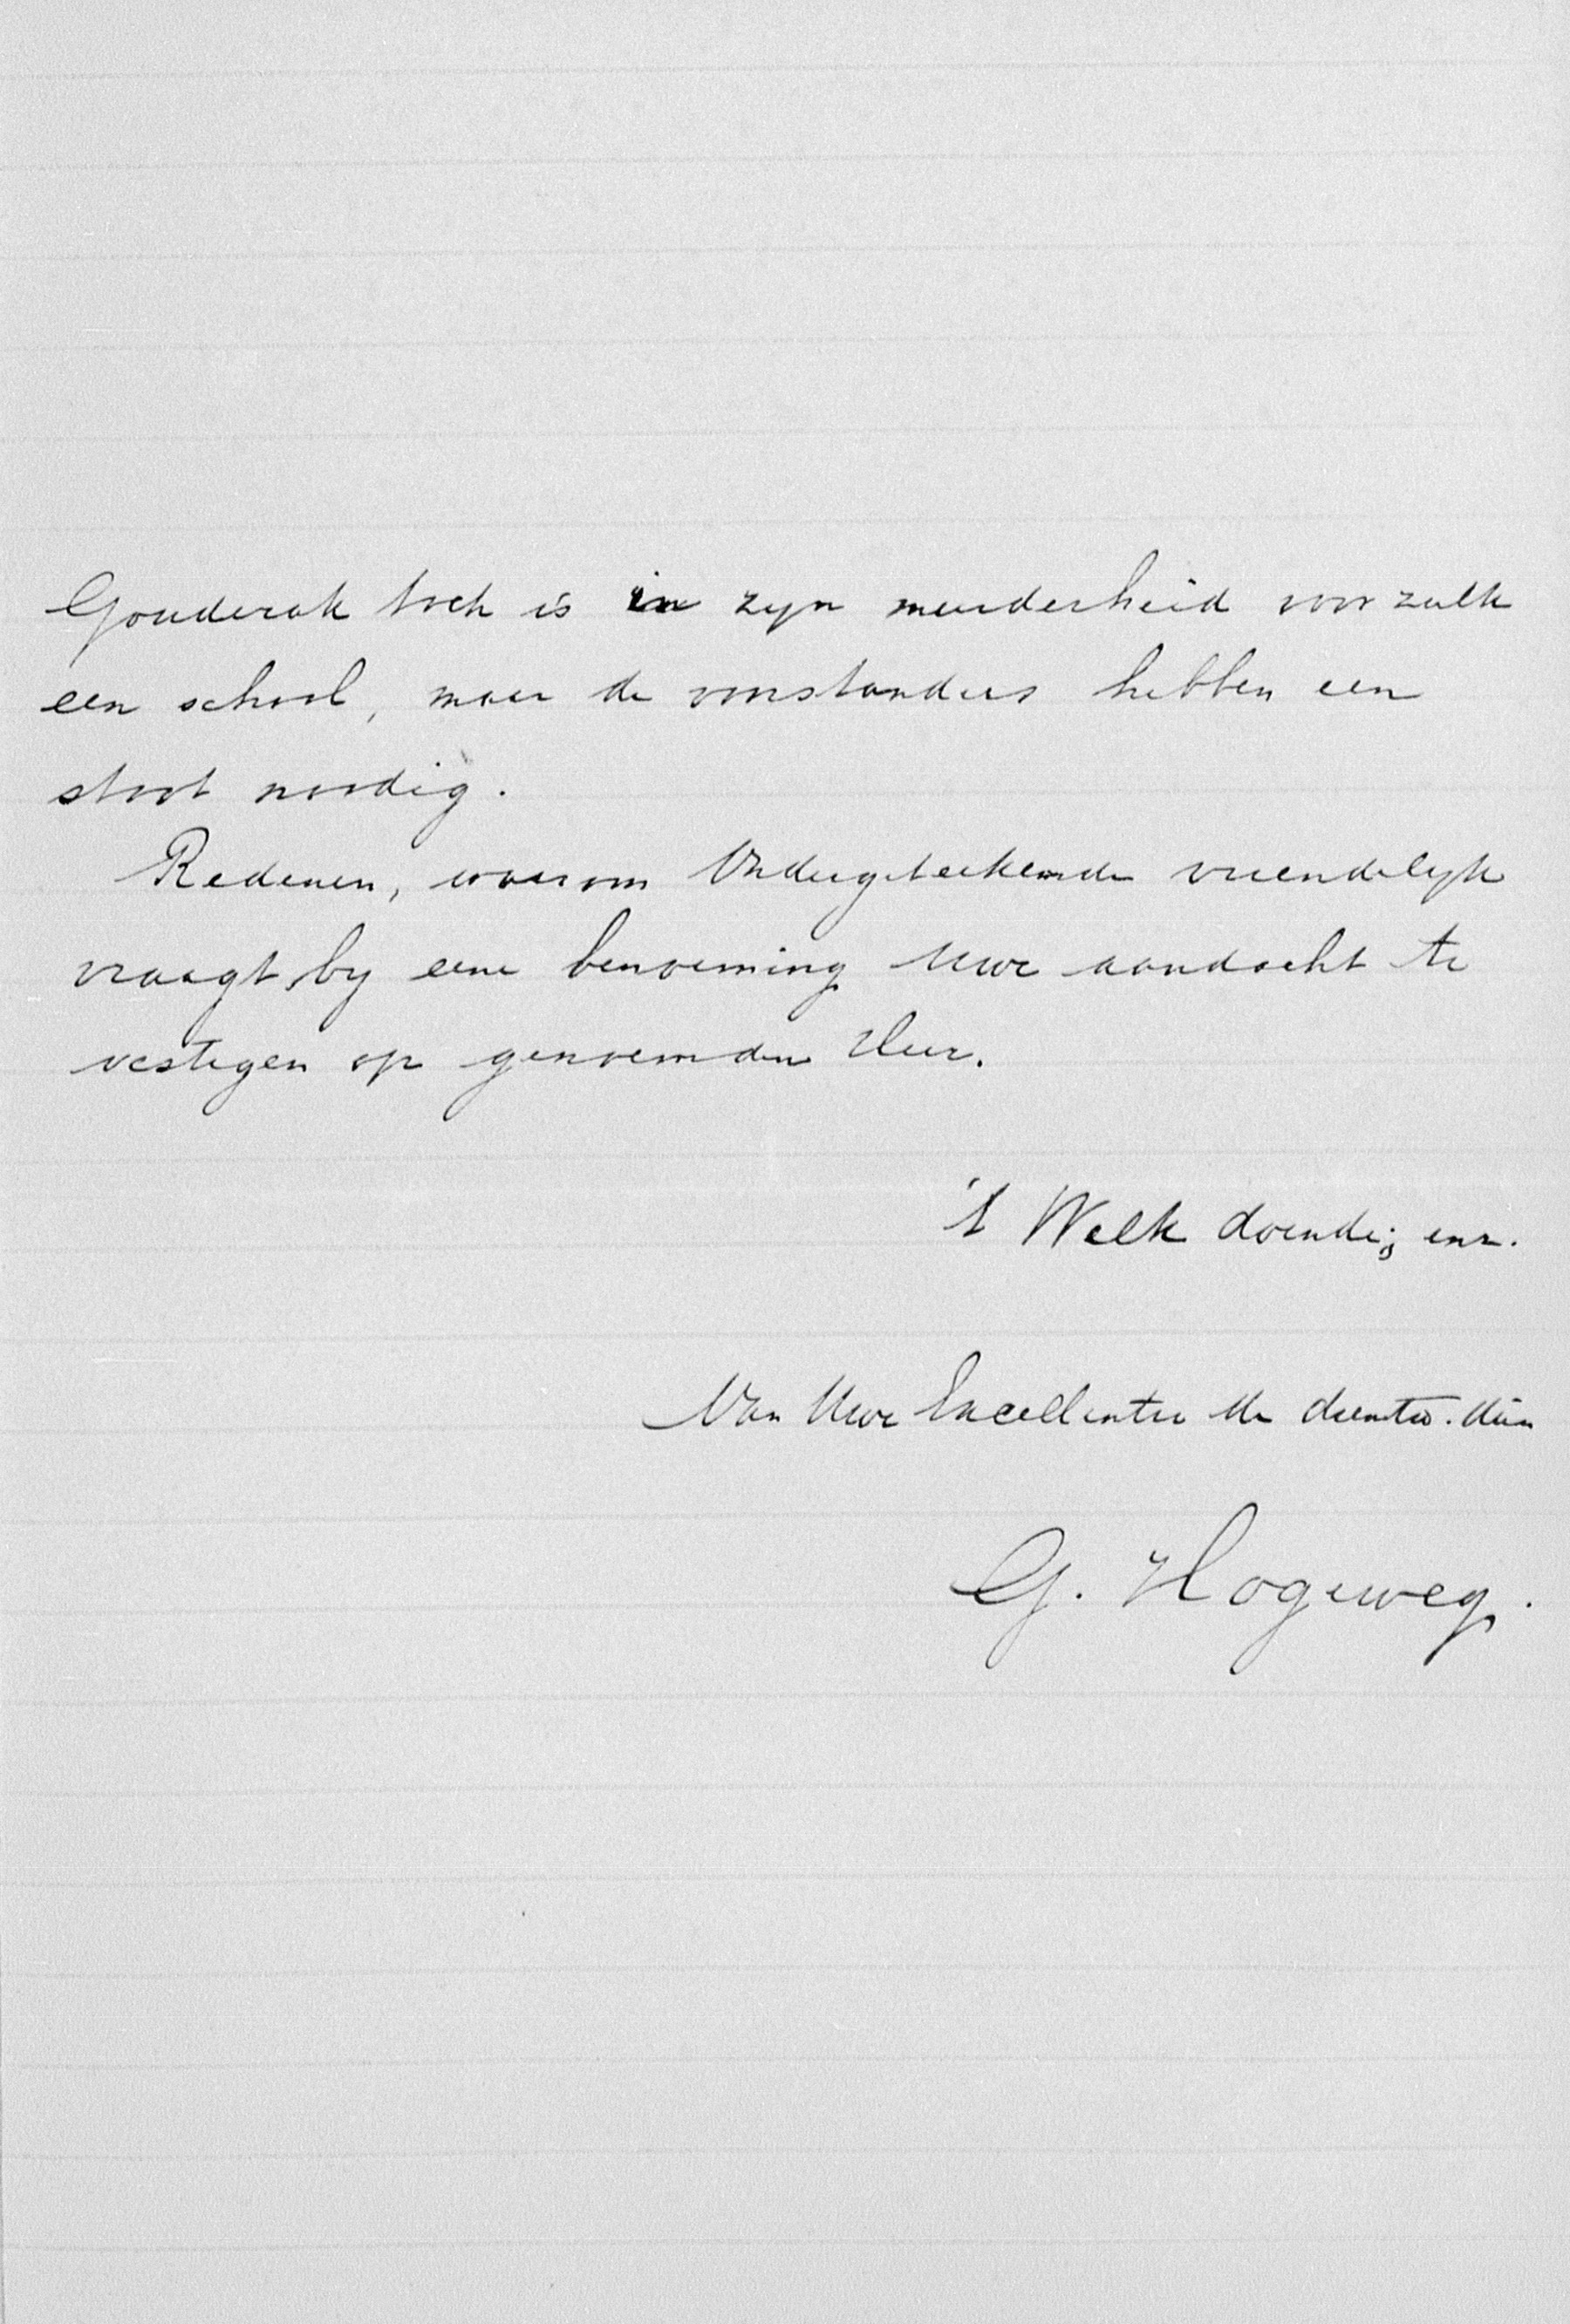 Gouderak toch is in zyn meerderheid voor zulk
een school, maar de voorstanders hebben een
stoot noodig.
Redenen, waarom Ondergeteekende vriendelyk
vraagt by eene benoeming Uwe aandacht te
vestigen op genoemden Heer.
't Welk doende, enz.
Van Uwe Excellentie de dienstw. dien
G. Hogeweg.